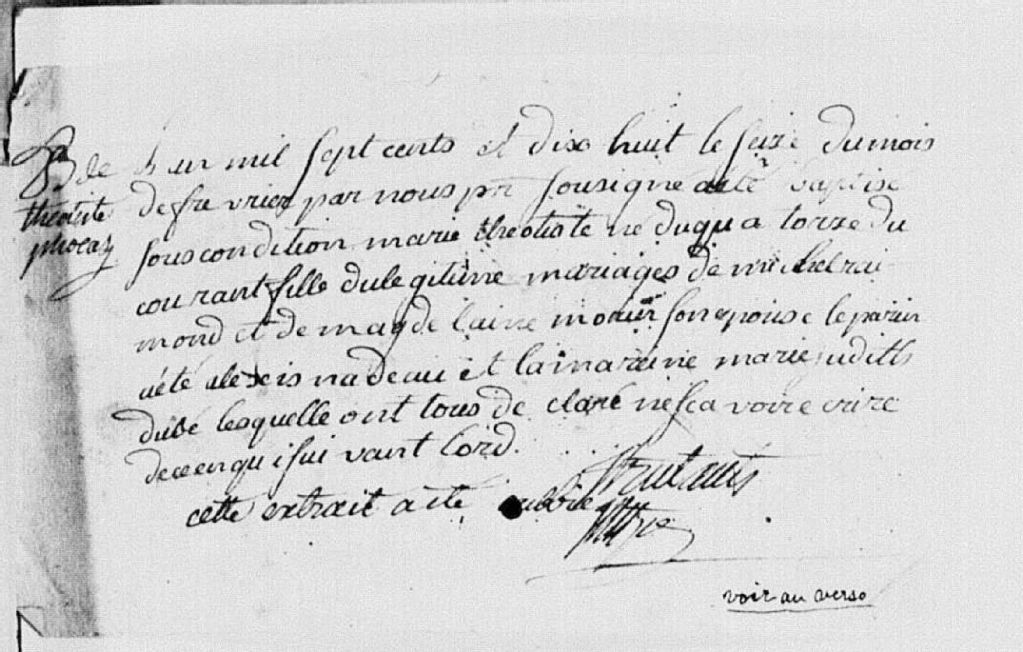 Bã de
theotiste
phocas
L'an mil sept cents et dix huit le seize du mois
de fevrier par nous ptr sousigné a été baptisé
sous condition marie theotiste né du qua torze du
courant fille du legitime mariages de michel rai
mond et de magdelaine morin son epouse le parin
a été alexis nadeau et la maraine marie judith
dubé lesquelle ont tous de claré ne sca voir ecrire
de ce enqui sui vant lord.
cette extrait a été oublié
ptre
voir au verso